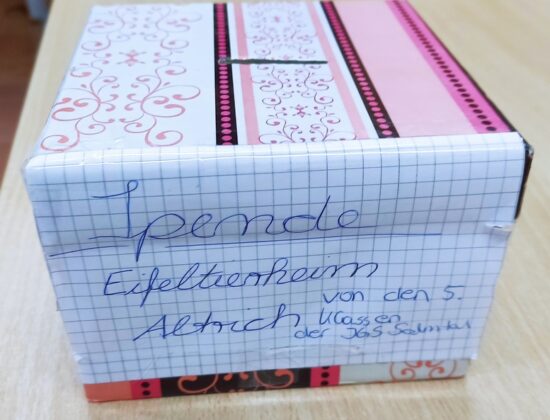 Spende
Eifeltierheim
Altrich
von den 5.
Klassen
der IGS Salmtal